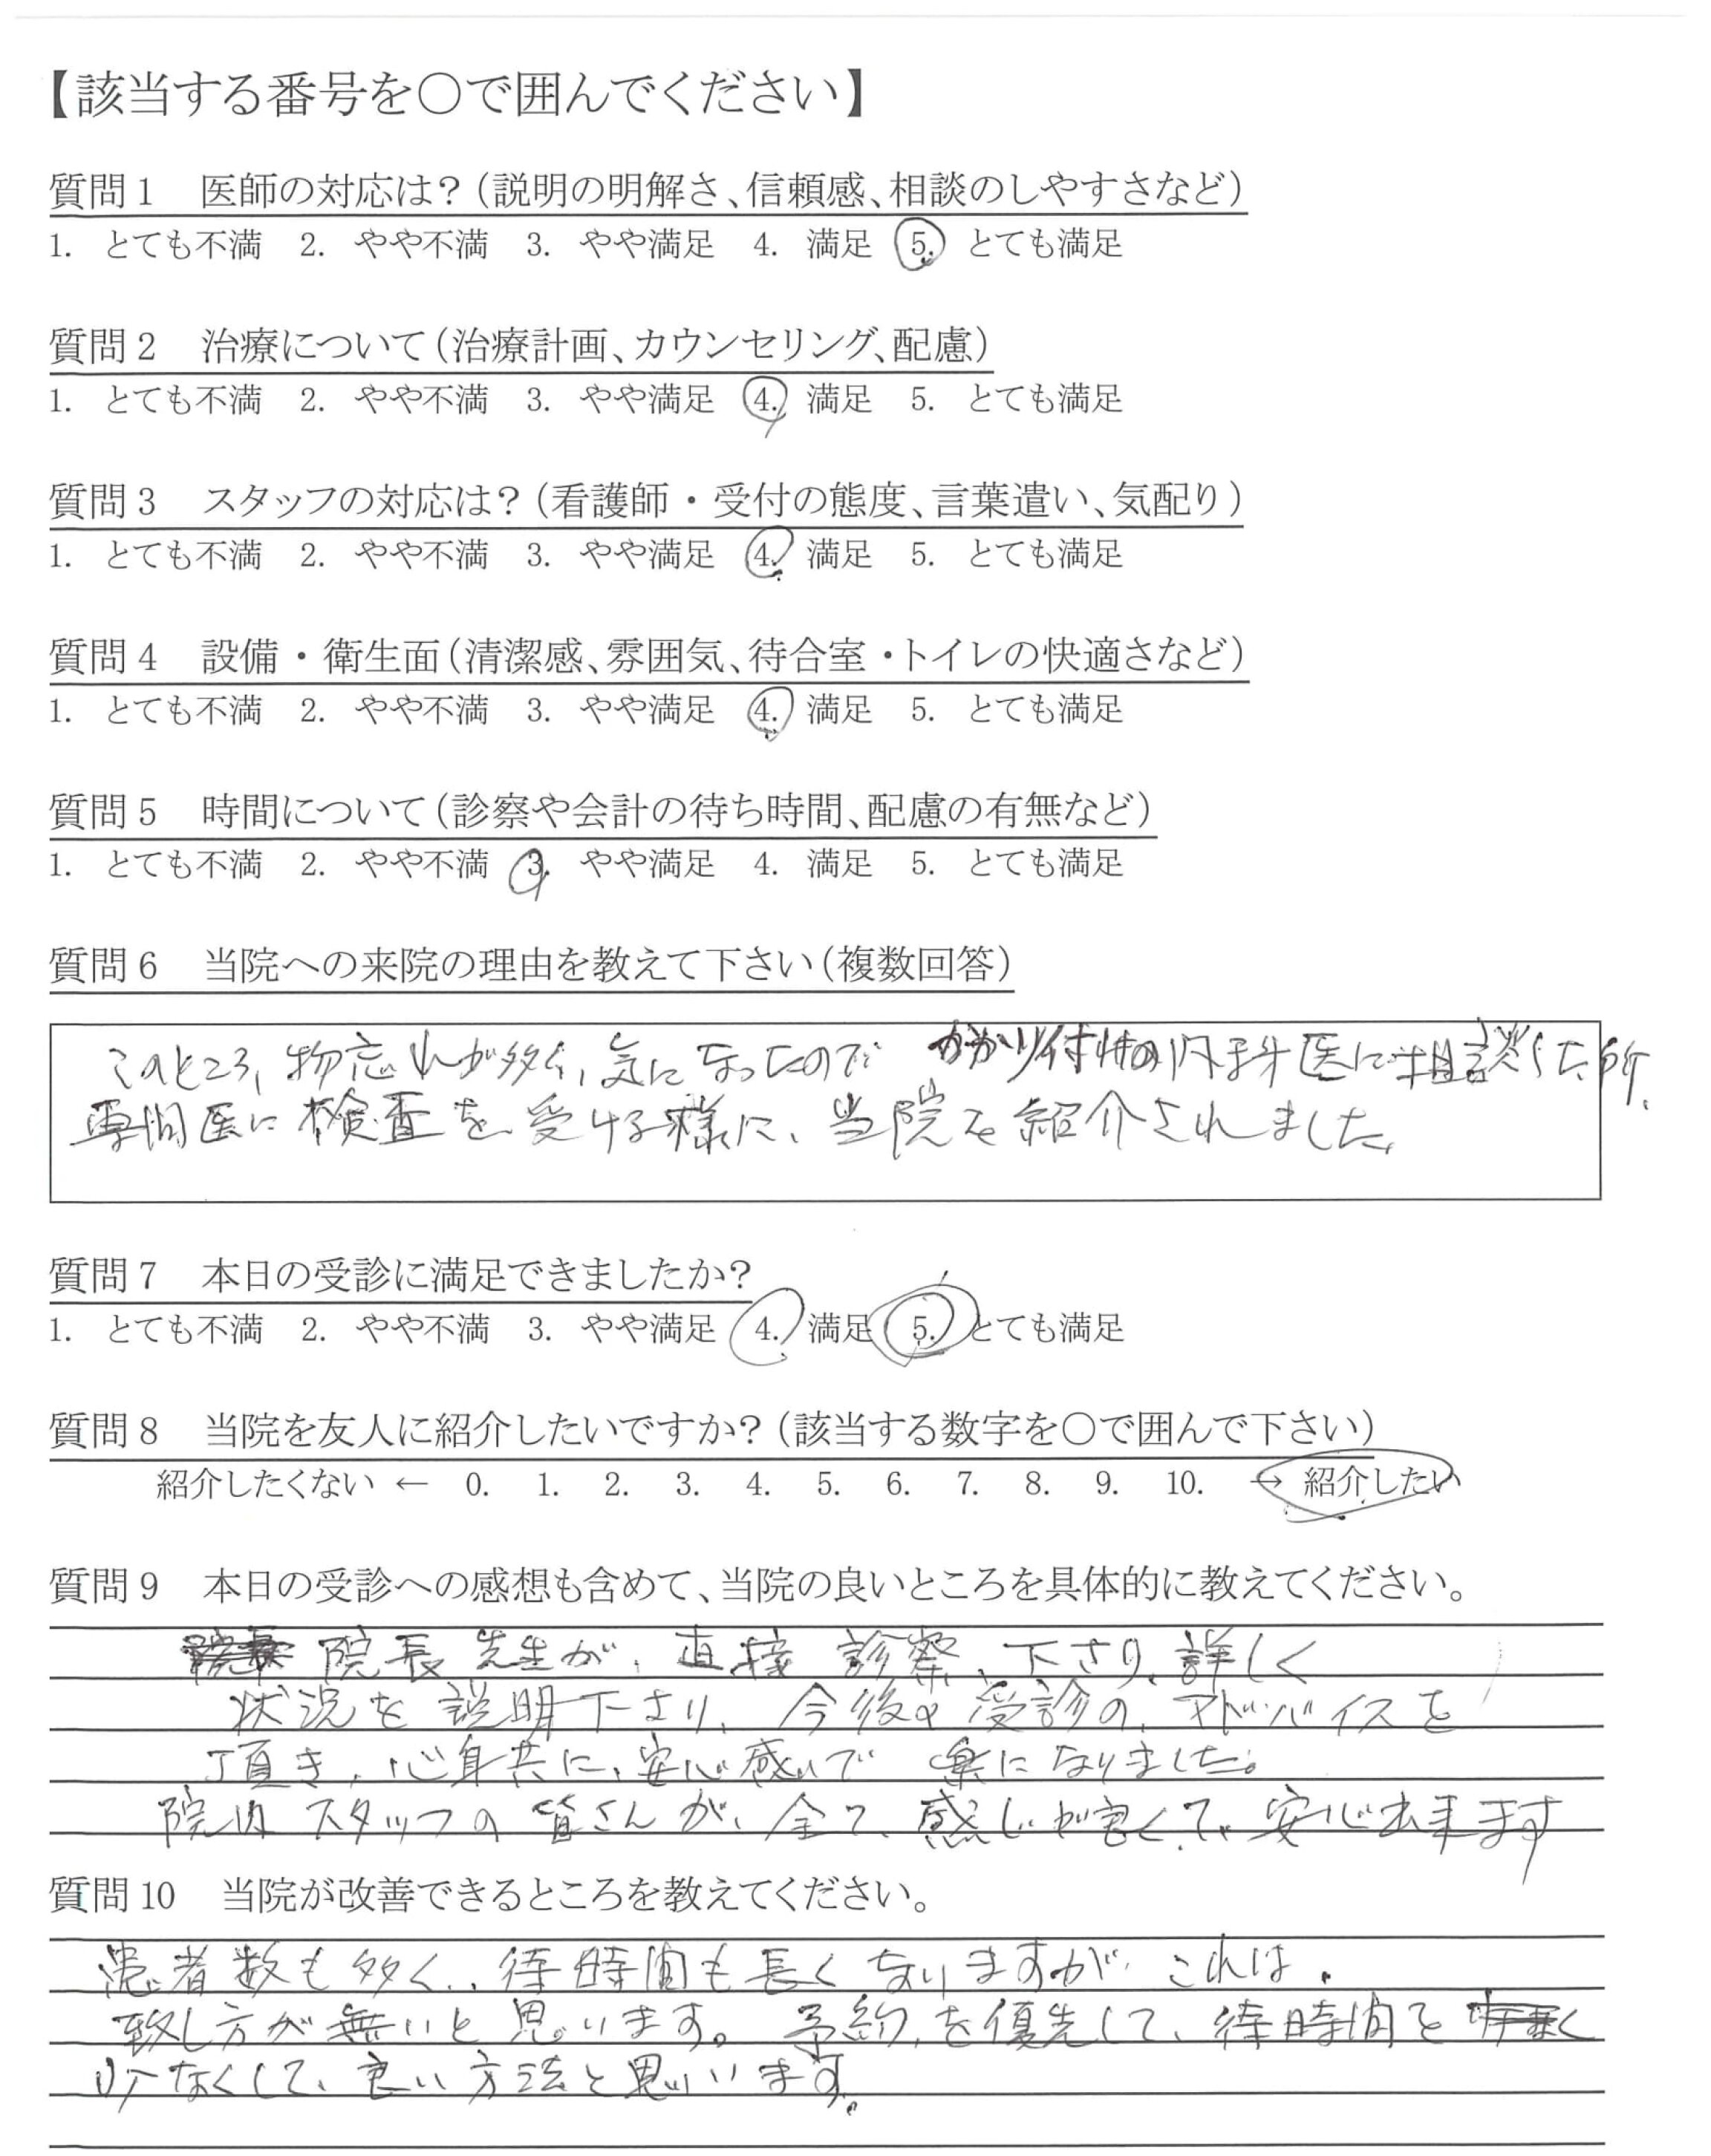 【該当する番号を○で囲んでください】
質問1　医師の対応は？（説明の明解さ、信頼感、相談のしやすさなど）
1. とても不満　2. やや不満　3. やや満足　4. 満足　5. とても満足
質問2　治療について（治療計画、カウンセリング、配慮）
1. とても不満　2. やや不満　3. やや満足　4. 満足　5. とても満足
質問3　スタッフの対応は？（看護師・受付の態度、言葉遣い、気配り）
1. とても不満　2. やや不満　3. やや満足　4. 満足　5. とても満足
質問4　設備・衛生面（清潔感、雰囲気、待合室・トイレの快適さなど）
1. とても不満　2. やや不満　3. やや満足　4. 満足　5. とても満足
質問5　時間について（診察や会計の待ち時間、配慮の有無など）
1. とても不満　2. やや不満　3. やや満足　4. 満足　5. とても満足
質問6　当院への来院の理由を教えて下さい（複数回答）
このところ、物忘れが多く、気になったので かかり付けの内科医に相談した所、
専門医に検査を受ける様に、当院を紹介されました。
質問7　本日の受診に満足できましたか？
1. とても不満　2. やや不満　3. やや満足　4. 満足　5. とても満足
質問8　当院を友人に紹介したいですか？（該当する数字を○で囲んで下さい）
紹介したくない ← 0. 1. 2. 3. 4. 5. 6. 7. 8. 9. 10. → 紹介したい
質問9　本日の受診への感想も含めて、当院の良いところを具体的に教えてください。
院長先生が、直接診察、下さり、詳しく
状況を説明下さり、今後の受診の、アドバイスを
頂き、心身共に、安心感で 楽になりました。
院内スタッフの皆さんが、全て、感じが良くて、安心出来ます
質問10　当院が改善できるところを教えてください。
患者数も多く、待時間も長くなりますが、これは、
致し方が無いと思います。予約を優先して、待時間を
少なくして、良い方法と思います。